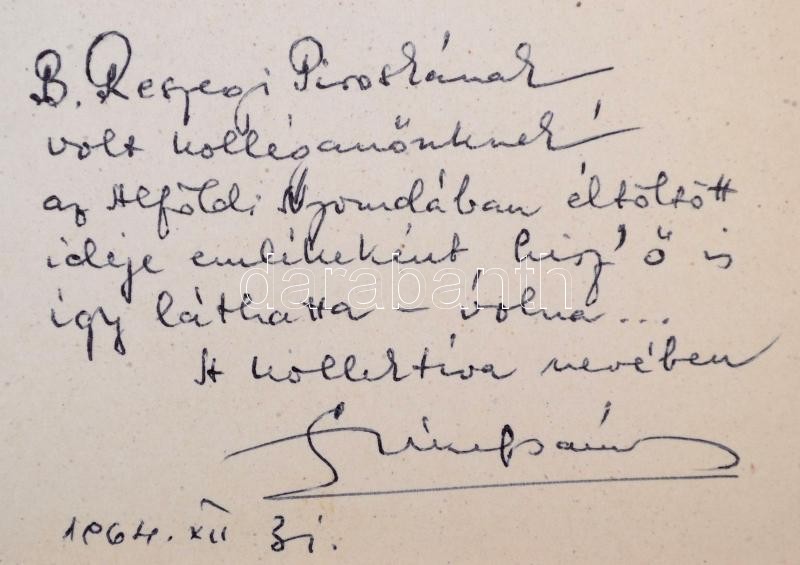 B. Reszegi Piroskának
volt kolléganőnknek
az Alföldi Nyomdában éltöltött
ideje emlékeként hisz' ő is
darabanth
így láthatta – volna...
A kollektíva nevében
1964. XII 31.